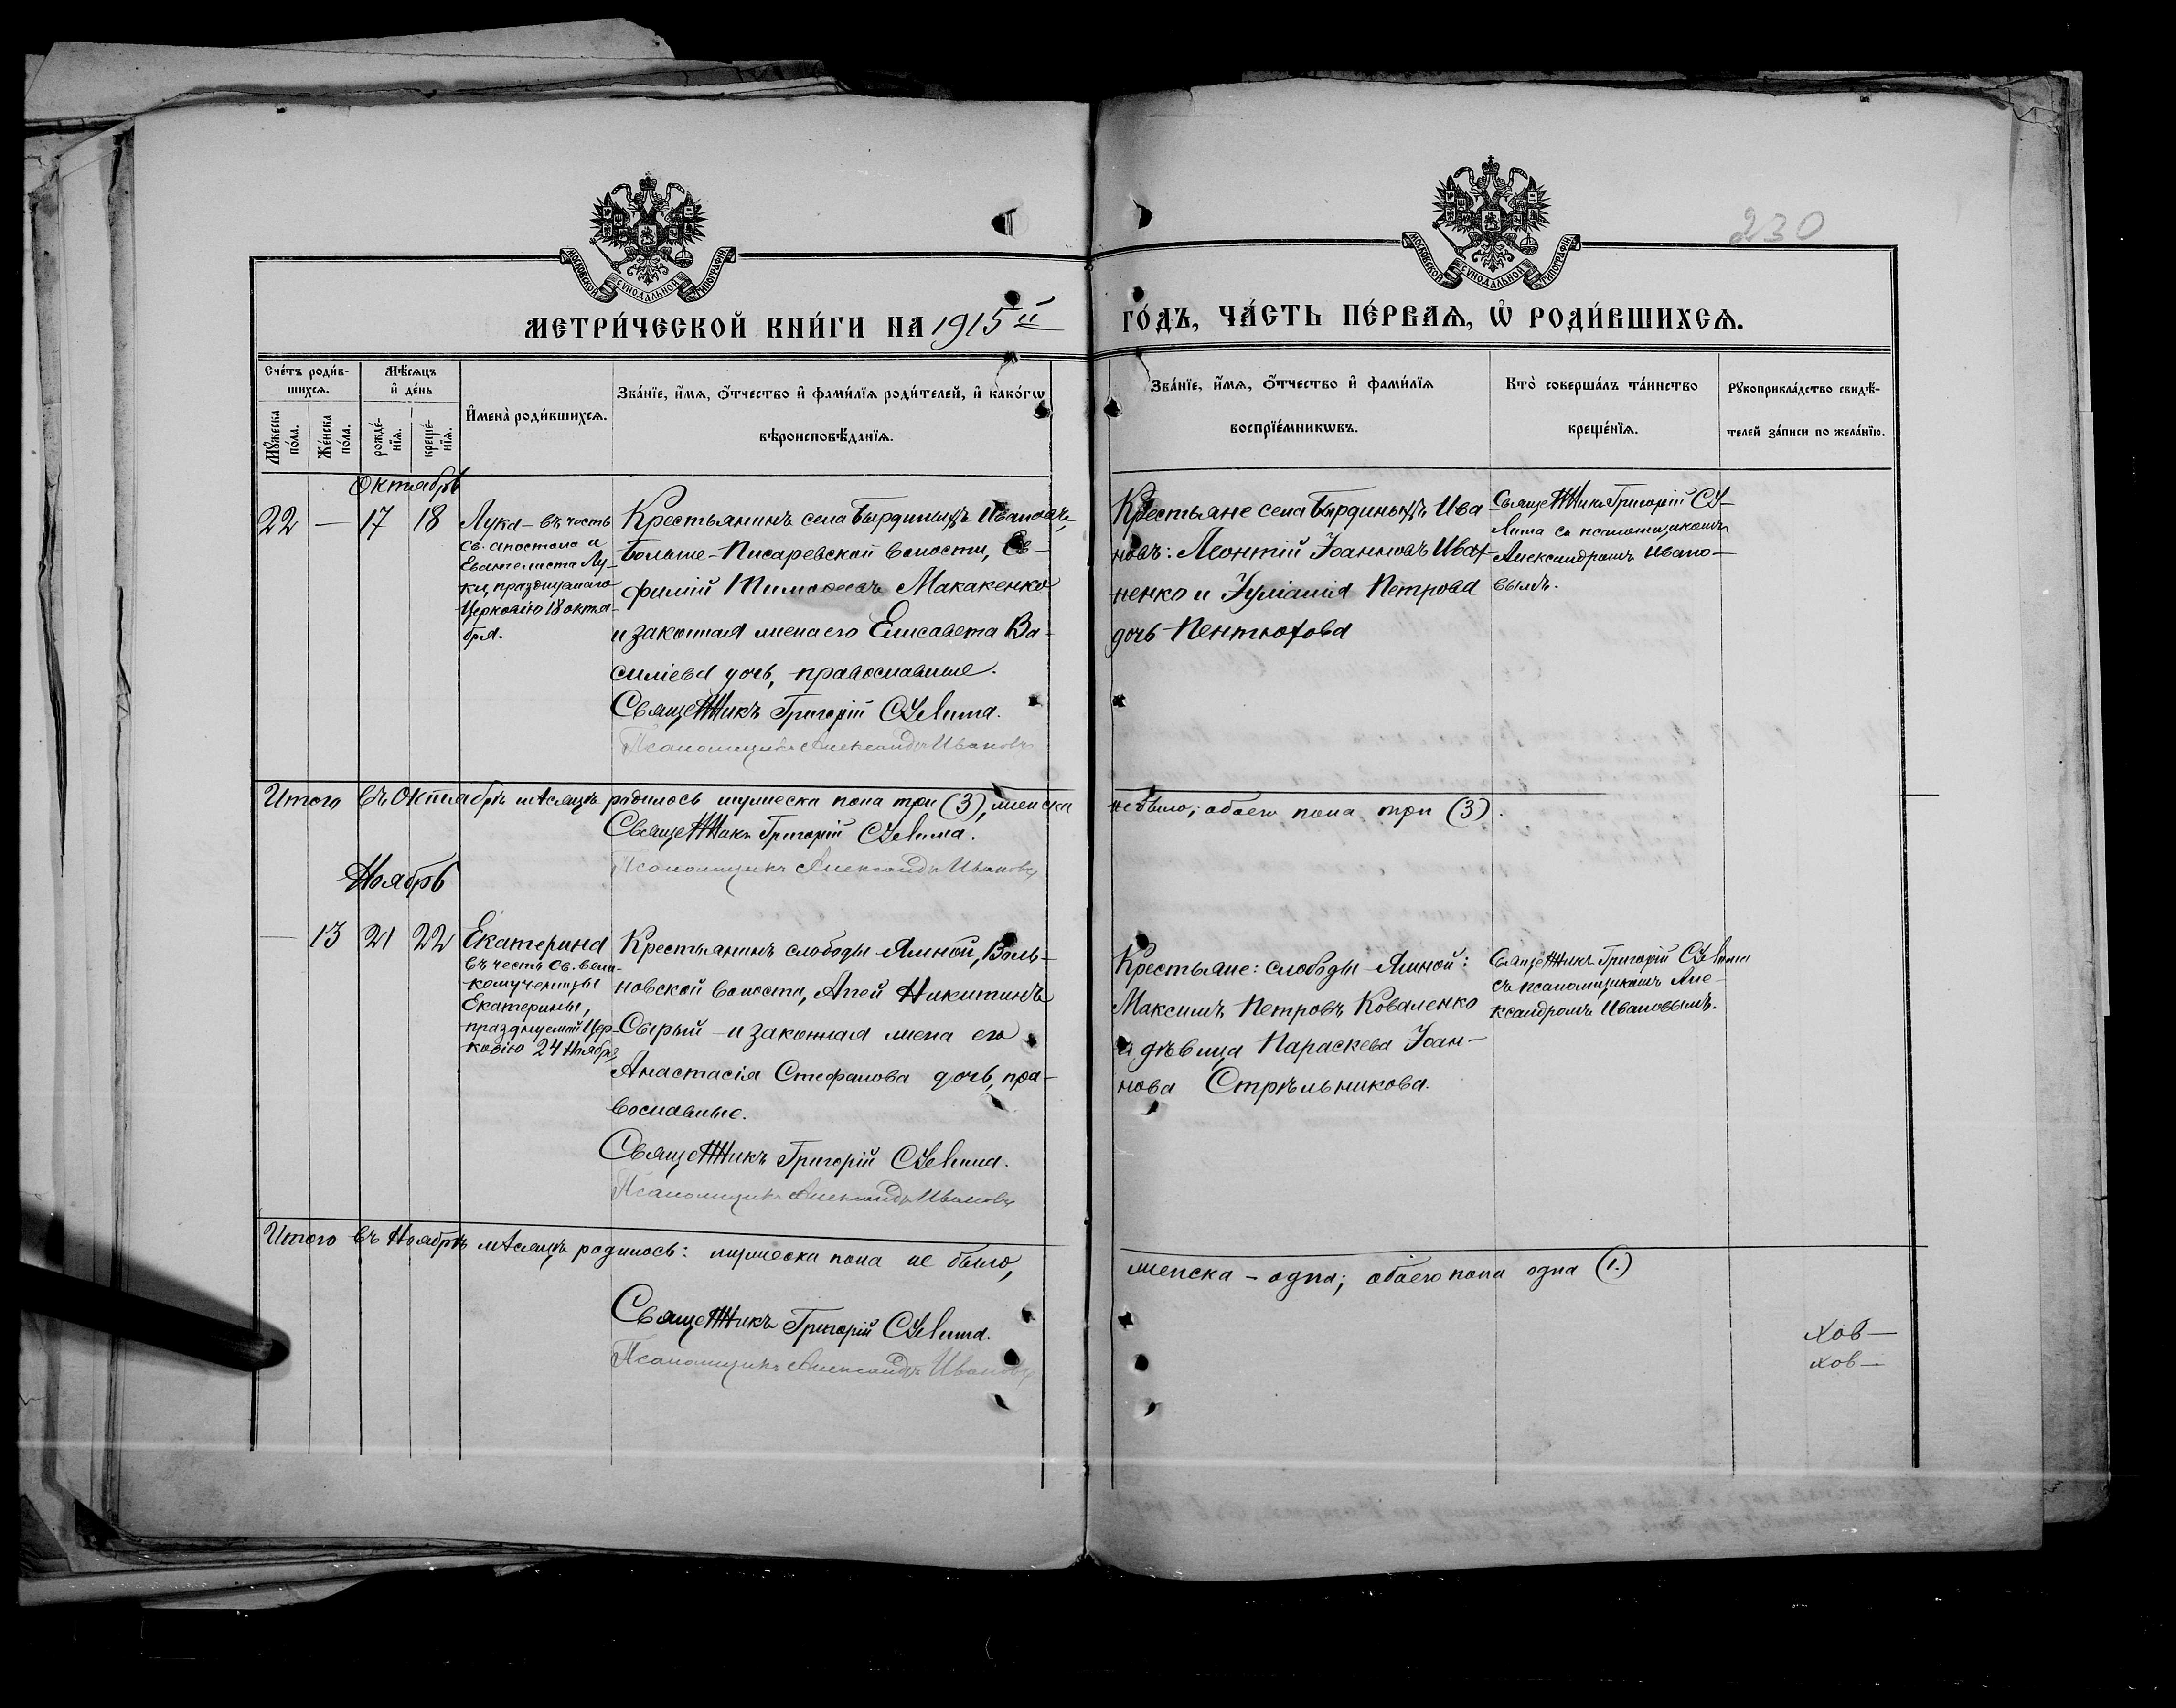 230
МОСКОВСКОЙ СѴНОДАЛЬНОЙ ТИПОГРАФІИ
МОСКОВСКОЙ СѴНОДАЛЬНОЙ ТИПОГРАФІИ
МЕТРИ́ЧЕСКОЙ КНИ́ГИ НА 1915й
ГО́ДЪ, ЧА́СТЬ ПЕ́РВАѦ, Ѡ РОДИ́ВШИХСѦ.
Сче́тъ роди́в-
шихсѧ.
Мꙋ́жеска по́ла.
Же́нска по́ла.
Мѣ́сѧцъ
и҆ де́нь
рожде́-
нїѧ.
креще́-
нїѧ.
И҆мена̀ роди́вшихсѧ.
Зва́нїе, и҆́мѧ, ѻ҆́тчество и҆ фами́лїѧ роди́телей, и҆ како́гѡ
вѣроисповѣ́данїѧ.
Зва́нїе, и҆́мѧ, ѻ҆́тчество и҆ фами́лїѧ
воспрїе́мникѡвъ.
Кто̀ соверша́лъ та́инство
креще́нїѧ.
Рꙋкоприкла́дство свидѣ́-
телей за́писи по жела́нїю.
Октябрь
22 — 17 18
Лука – въ честь
св. апостола и
Евангелиста Лу-
ки, празднуемаго
Церковію 18 октя-
бря.
Крестьянинъ села Бырдиныхъ Ивановъ,
Больше-Писаревской волости, Ев-
фимій Тимоѳеевъ Макакенко
и законная жена его Елисавета Ва-
силіева дочь, православные.
Священникъ Григорій Сулима.
Псаломщикъ Александръ Ивановъ
Крестьяне села Бырдиныхъ Ива-
новъ: Леонтій Іоанновъ Ива-
ненко и Іуліанія Петрова
дочь Пентюхова
Священникъ Григорій Су-
лима съ псаломщикомъ
Александромъ Ивано-
вымъ.
Итого въ Октябрѣ мѣсяцѣ родилось мужеска пола три (3), женска
не было; обоего пола три (3).
Священникъ Григорій Сулима.
Псаломщикъ Александръ Ивановъ
Ноябрь
— 13 21 22
Екатерина
въ честь св. вели-
комученицы
Екатерины,
празднуемой Цер-
ковію 24 Ноября
Крестьянинъ слободы Ямной, Воль-
новской волости, Аггей Никитинъ
Сырый и законная жена его
Анастасія Стефанова дочь, пра-
вославные.
Священникъ Григорій Сулима.
Псаломщикъ Александръ Ивановъ
Крестьяне: слободы Ямной:
Максимъ Петровъ Коваленко
и дѣвица Параскева Іоан-
нова Стрѣльникова.
Священникъ Григорій Сулима
съ псаломщикомъ Але-
ксандромъ Ивановымъ.
Итого въ Ноябрѣ мѣсяцѣ родилось: мужеска пола не было,
женска – одна; обоего пола одна (1.)
Священникъ Григорій Сулима.
Псаломщикъ Александръ Ивановъ
хов—
хов—